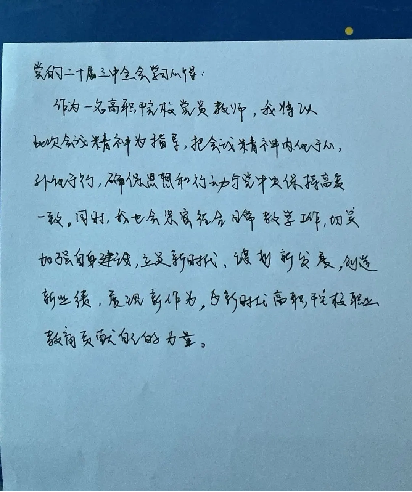 党的二十届三中全会学习心得:
作为一名高职院校党员教师,我将以
此次会议精神为指导,把会议精神内化于心,
外化于行,确保思想和行动与党中央保持高度
一致。同时,我也会紧密结合日常教学工作,切实
加强自身建设,立足新时代、谋划新发展,创造
新业绩,展现新作为,为新时代高职院校职业
教育贡献自己的力量。